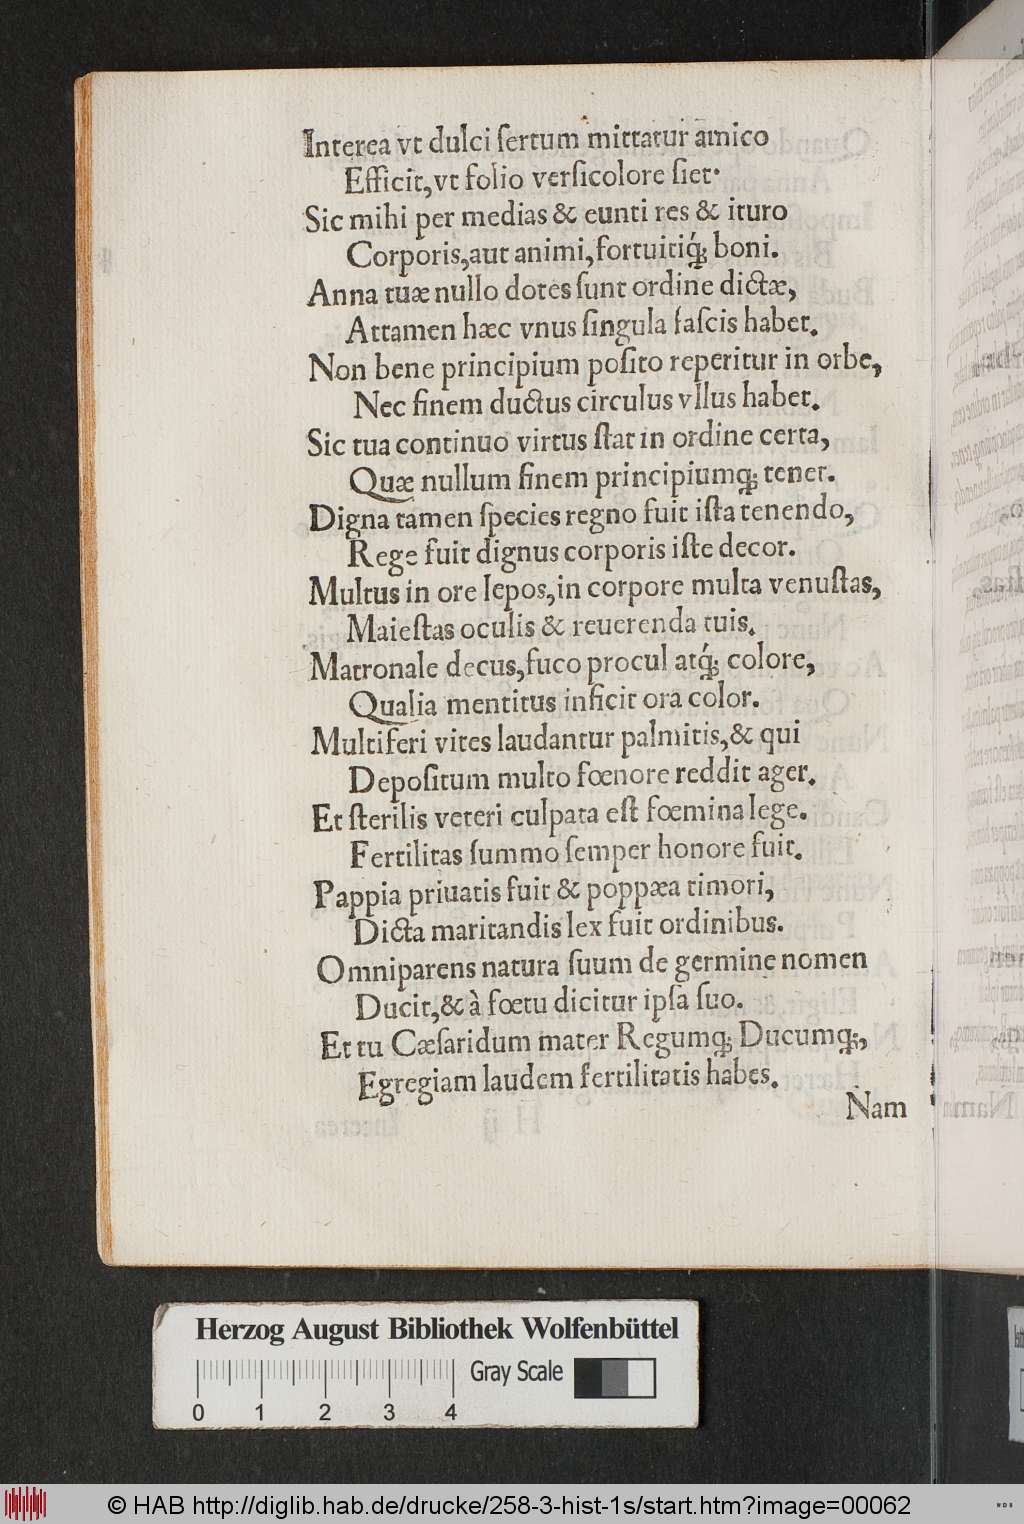 Interea vt dulci ſertum mittatur amico
Efficit,vt folio verſicolore ſiet·
Sic mihi per medias & eunti res & ituro
Corporis,aut animi,fortuitiq́; boni.
Anna tuæ nullo dotes ſunt ordine dictæ,
Attamen hæc vnus ſingula faſcis habet.
Non bene principium poſito reperitur in orbe,
Nec finem ductus circulus vllus habet.
Sic tua continuo virtus ſtat in ordine certa,
Quæ nullum finem principiumq; tenet.
Digna tamen ſpecies regno fuit iſta tenendo,
Rege fuit dignus corporis iſte decor.
Multus in ore lepos,in corpore multa venuſtas,
Maieſtas oculis & reuerenda tuis.
Matronale decus,fuco procul atq́; colore,
Qualia mentitus inficit ora color.
Multiferi vites laudantur palmitis,& qui
Depoſitum multo fœnore reddit ager.
Et ſterilis veteri culpata eſt fœmina lege.
Fertilitas ſummo ſemper honore fuit.
Pappia priuatis fuit & poppæa timori,
Dicta maritandis lex fuit ordinibus.
Omniparens natura ſuum de germine nomen
Ducit,& à fœtu dicitur ipſa ſuo.
Et tu Cæſaridum mater Regumq; Ducumq;,
Egregiam laudem fertilitatis habes.
Nam
Herzog August Bibliothek Wolfenbüttel
Gray Scale
0 1 2 3 4
© HAB http://diglib.hab.de/drucke/258-3-hist-1s/start.htm?image=00062